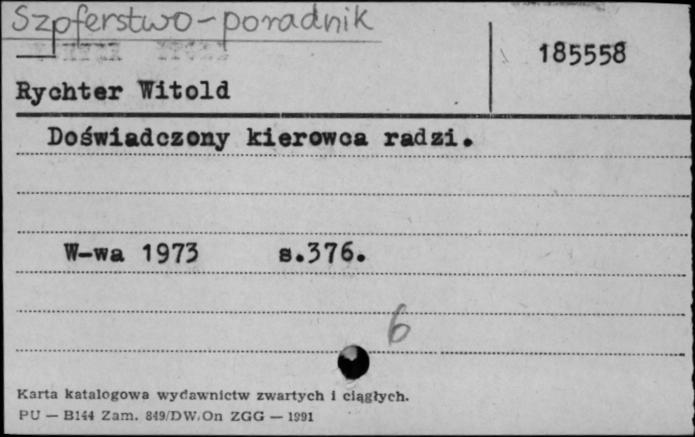 Szoferstwo-poradnik
185558
Rychter Witold
Doświadczony kierowca radzi.
W-wa 1973 s.376.
6
Karta katalogowa wydawnictw zwartych i ciągłych.
PU — B144 Zam. 849/DW.On ZGG — 1991